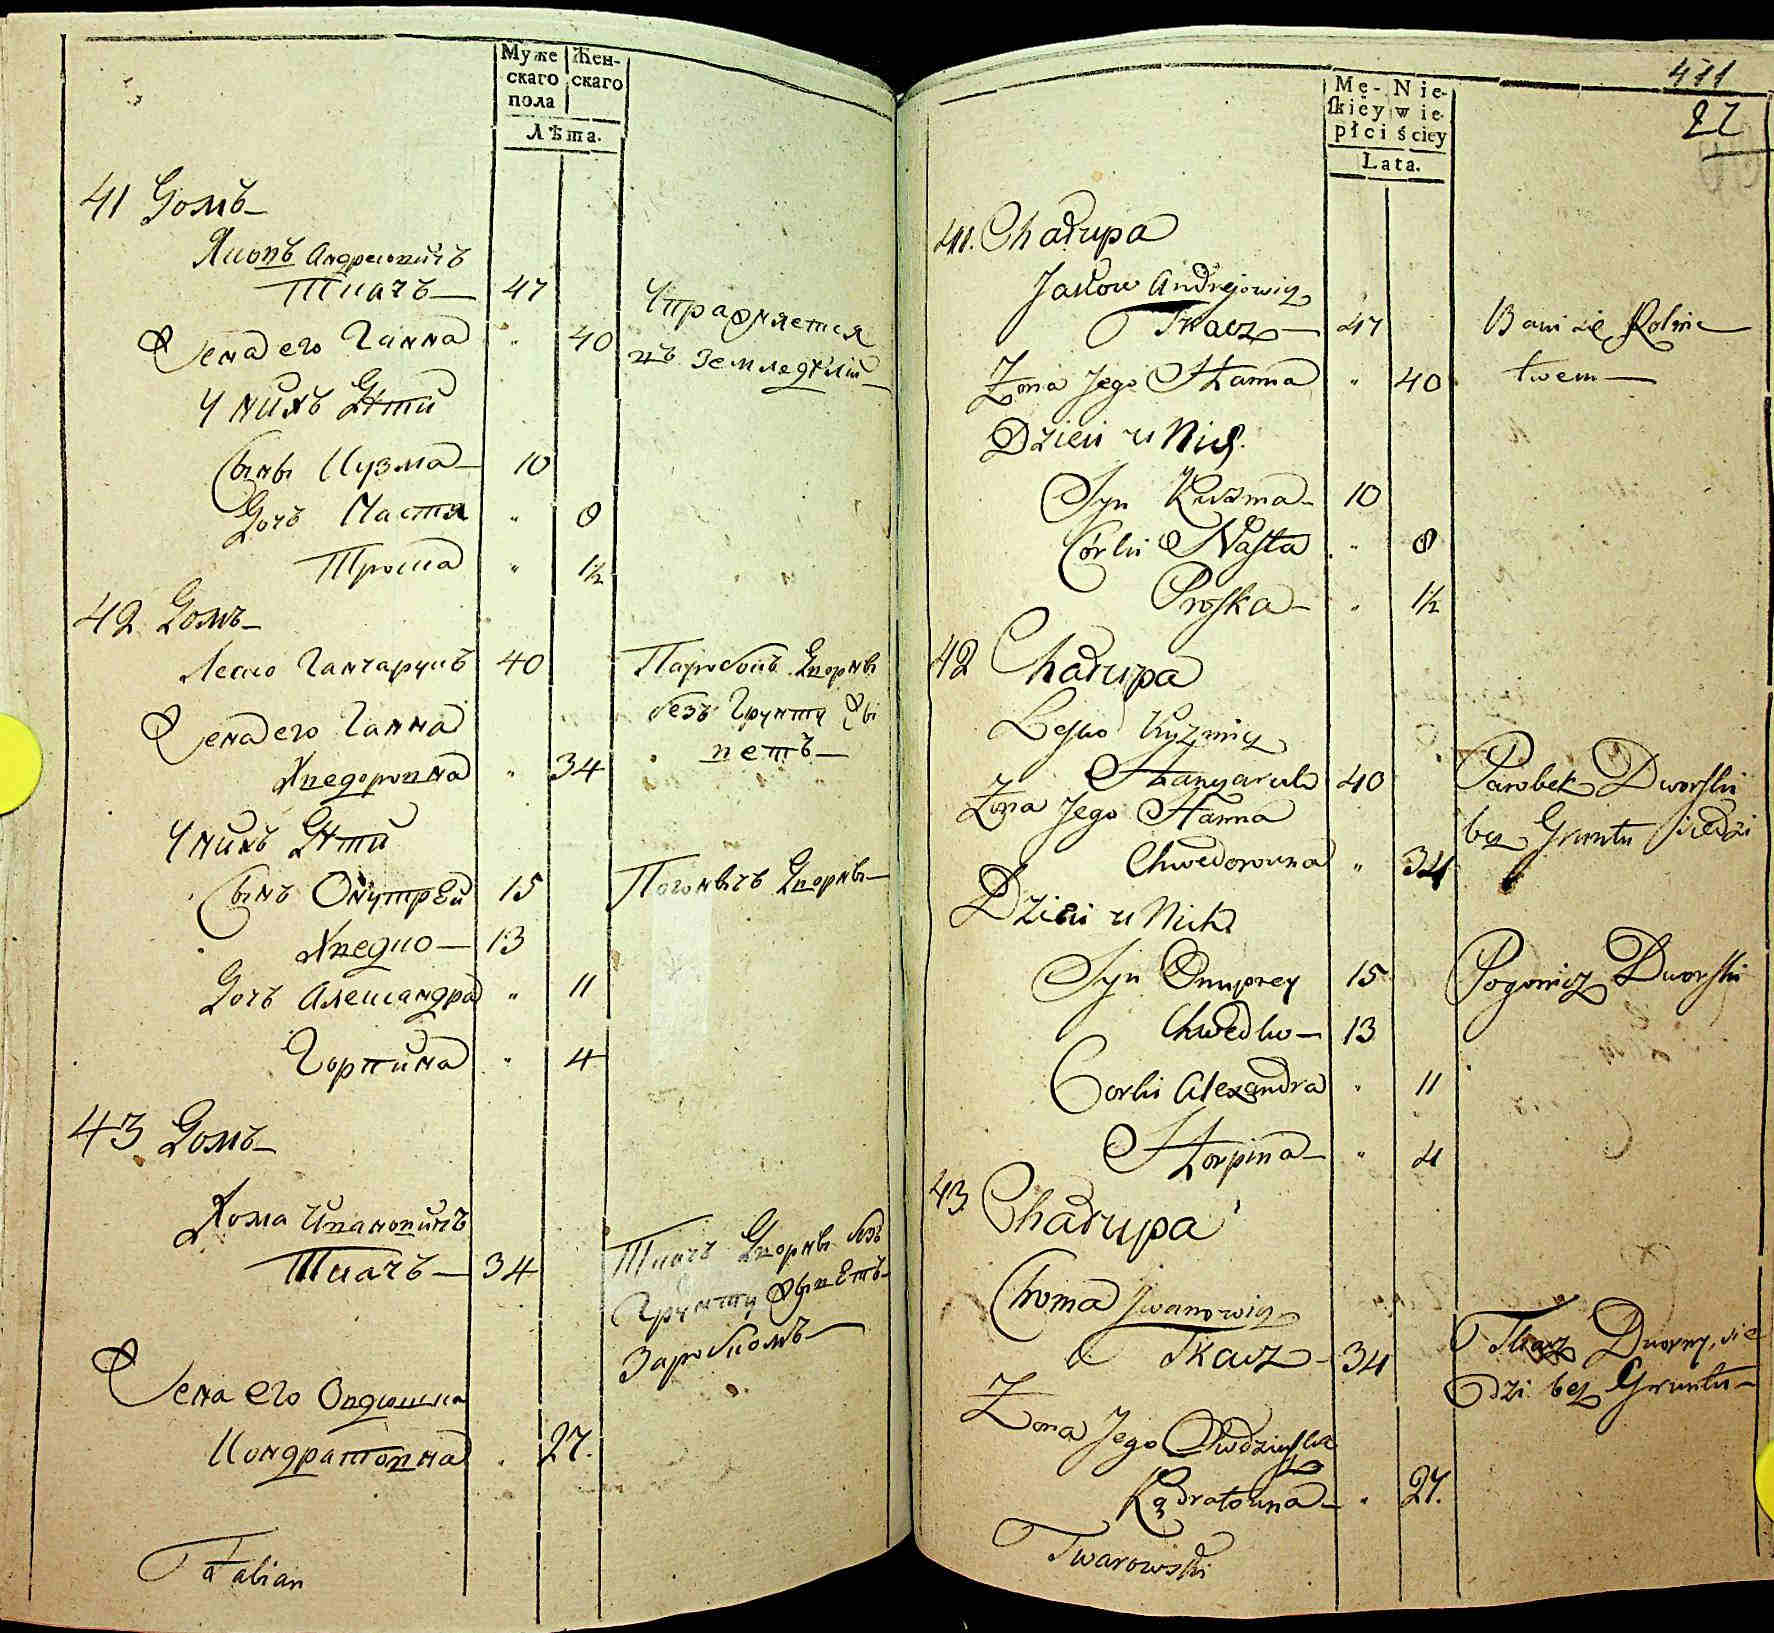 Муже Жен-
скаго скаго
пола
Лѣта.
41 Домъ
Яковъ Андреювичъ
Ткачъ 47
Жена его Ганна " 40
Упражняется
въ Земледѣліи
У нихъ Дѣти
Сынъ Кузма 10
Дочъ Настя " 8
Проска " 1½
42 Домъ
Леско Ганчарукъ 40
Паробокъ Дворны
безъ Грунту Жы
ветъ
Жена его Ганна
Хведоровна " 34
У нихъ Дѣти
Сынъ Онупрей 15
Погоничъ Дворны
Хведко 13
Дочъ Александра " 11
Горпина " 4
43 Домъ
Хома Ивановичъ
Ткачъ 34
Ткачъ Дворны безъ
Грунту Жыветъ
Заробкомъ
Жена его Овдюшка
Кондратовна " 27.
Fabian
411
22
Mę- Nie-
skiey wie-
płci ściey
Lata.
41. Chałupa
Jakow Andrejowicz
Tkacz 47
Bawi się Rolnic
twem
Żona Jego Hanna " 40
Dzieci u Nich
Syn Kuzma 10
Córki Nasta " 8
Proska " 1½
42 Chałupa
Lesko Kuzmicz
Hanczaruk 40
Parobek Dworski
bez Gruntu siedzi
Żona Jego Hanna
Chwedorowna " 34
Dzieci u Nich
Syn Onuprey 15
Pogonicz Dworski
Chwedko 13
Corki Alexandra " 11
Horpina " 4
43 Chałupa
Choma Iwanowicz
Tkacz 34
Tkacz Dworny, sie
dzi bez Gruntu
Żona Jego Owdziuszka
Kądratowna " 27.
Twarowski